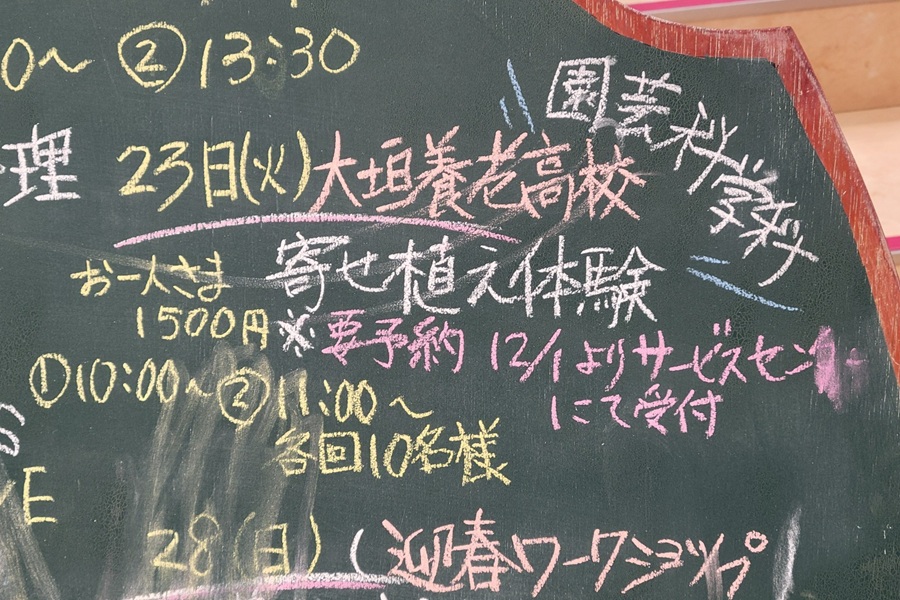 0～ ②13:30
理
23日(火)大垣養老高校
園芸科学科
寄せ植え体験
お一人さま
1500円
※要予約 12/1よりサービスセン
にて受付
①10:00～②11:00～
各回10名様
E
28(日)(迎春ワークショップ